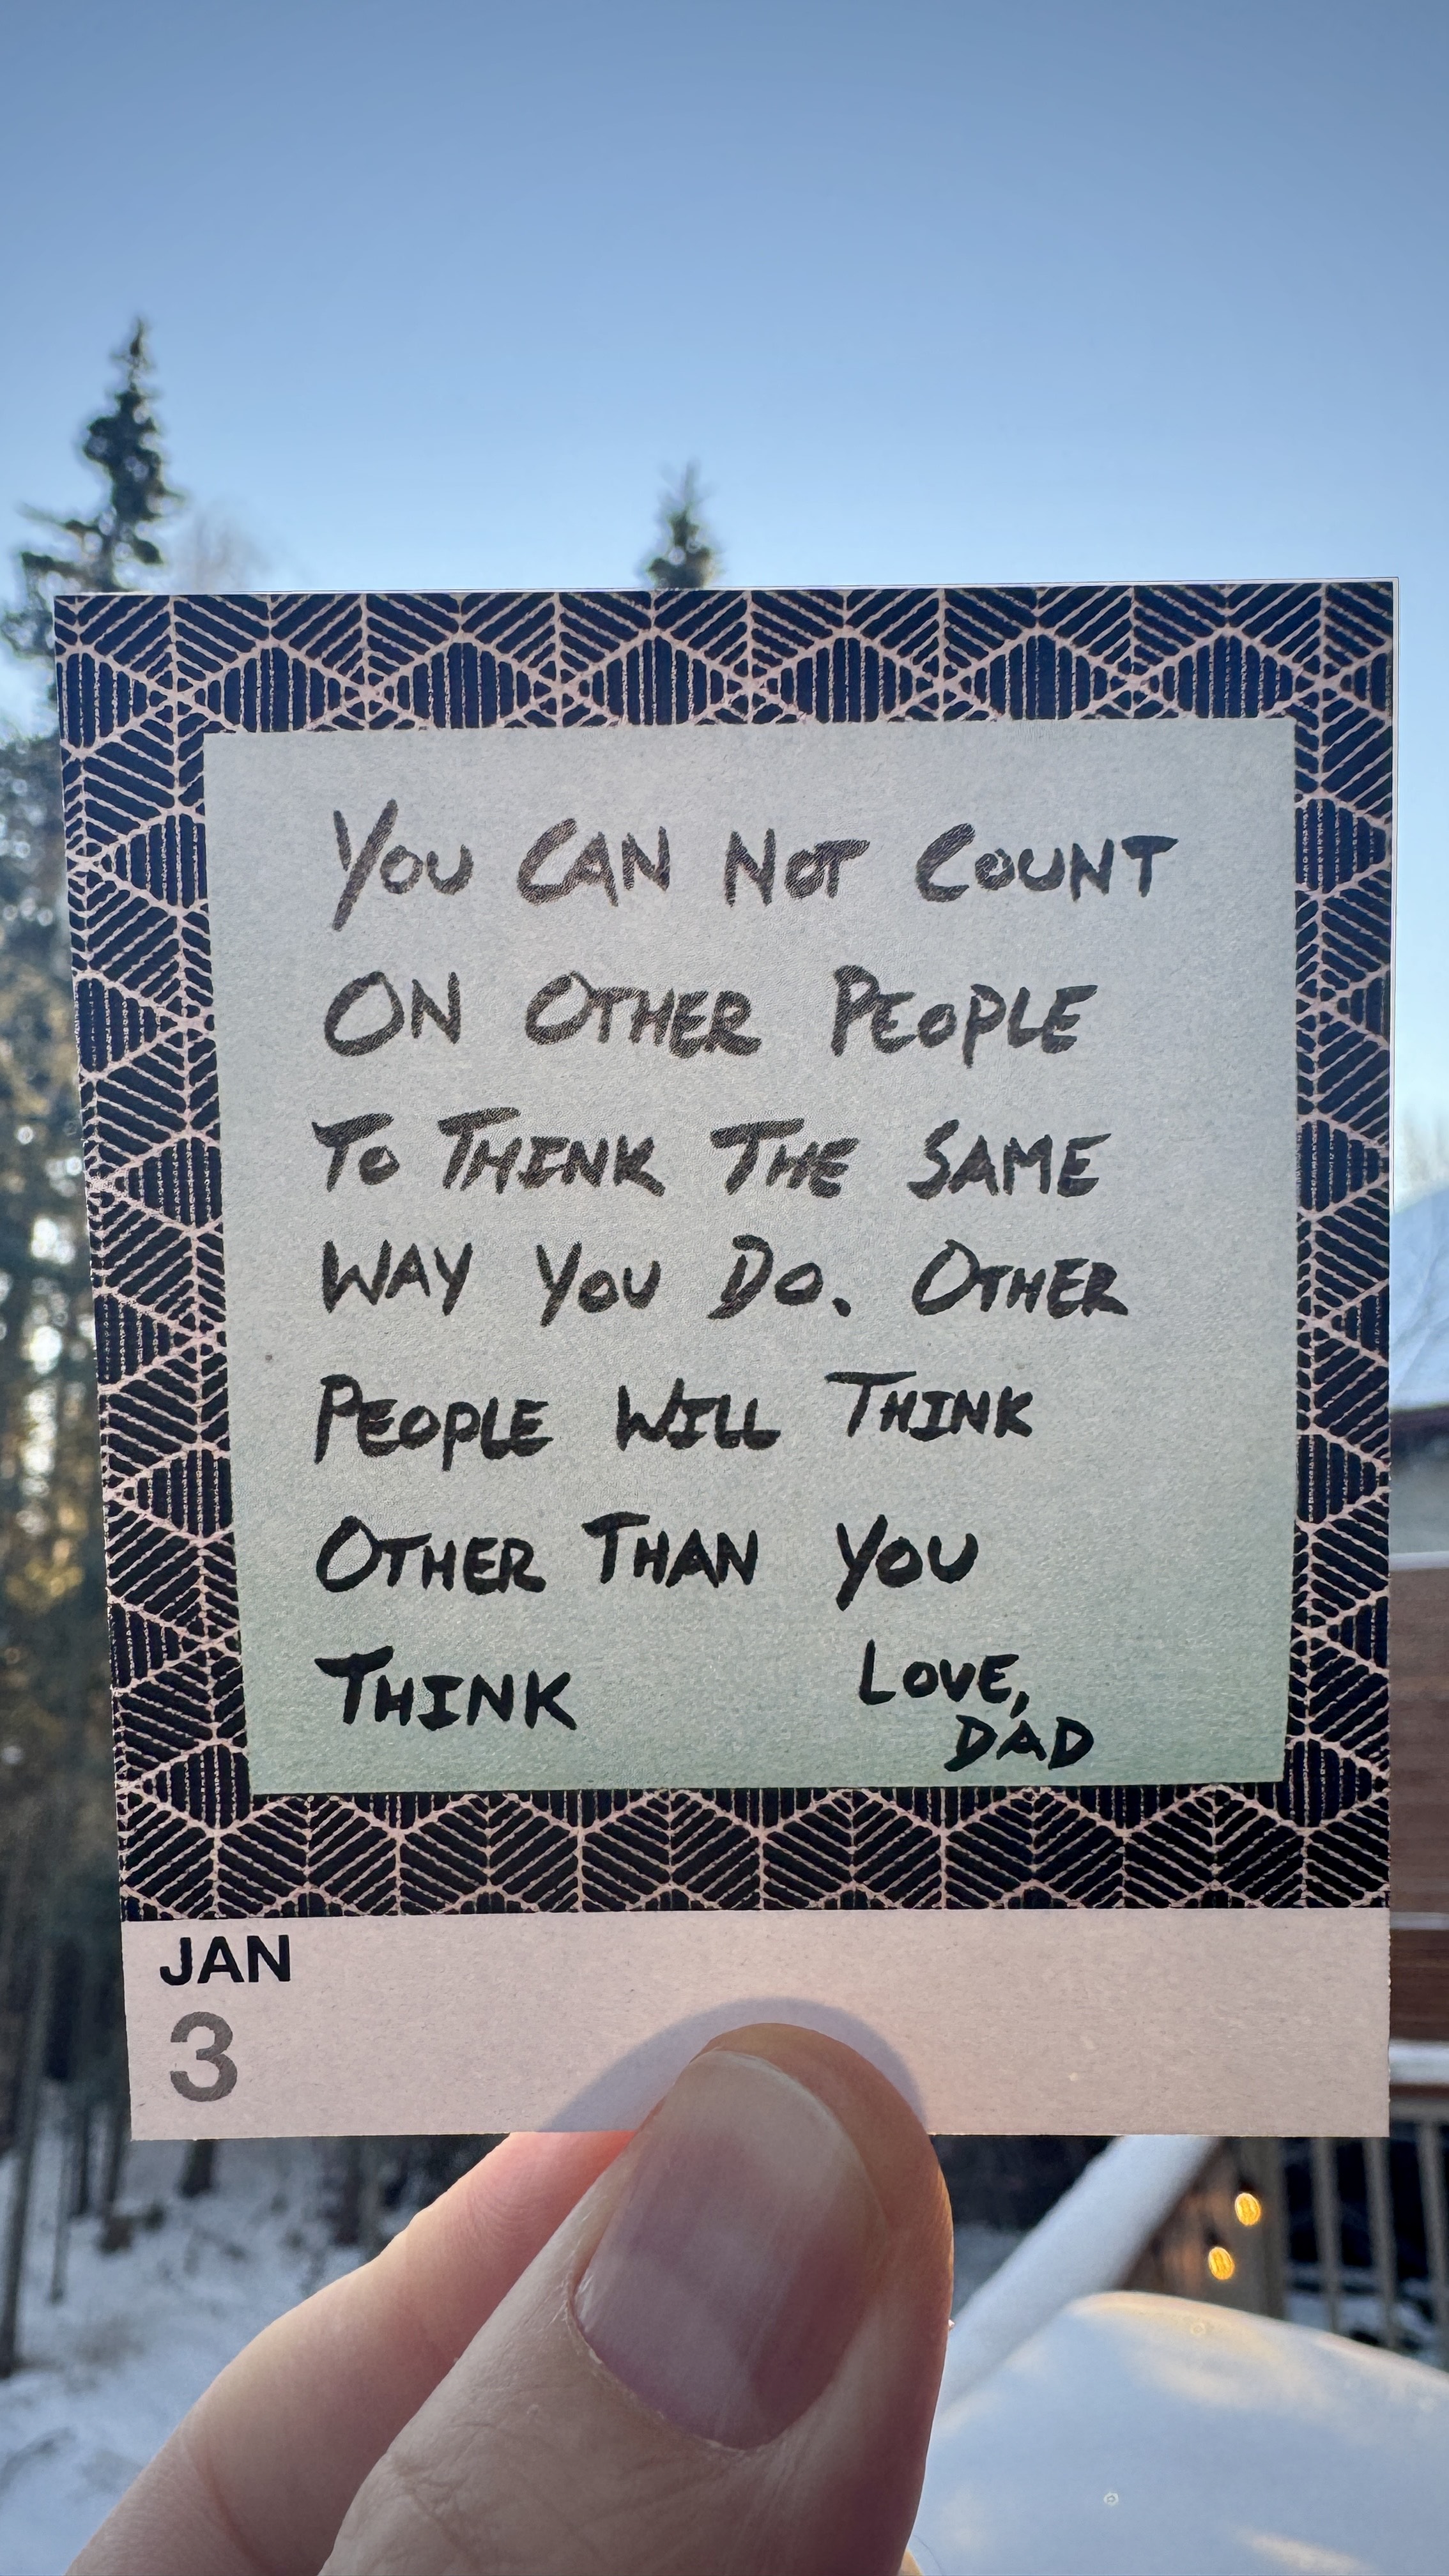 YOU CAN NOT COUNT
ON OTHER PEOPLE
TO THINK THE SAME
WAY YOU DO. OTHER
PEOPLE WILL THINK
OTHER THAN YOU
THINK
LOVE,
DAD
JAN
3